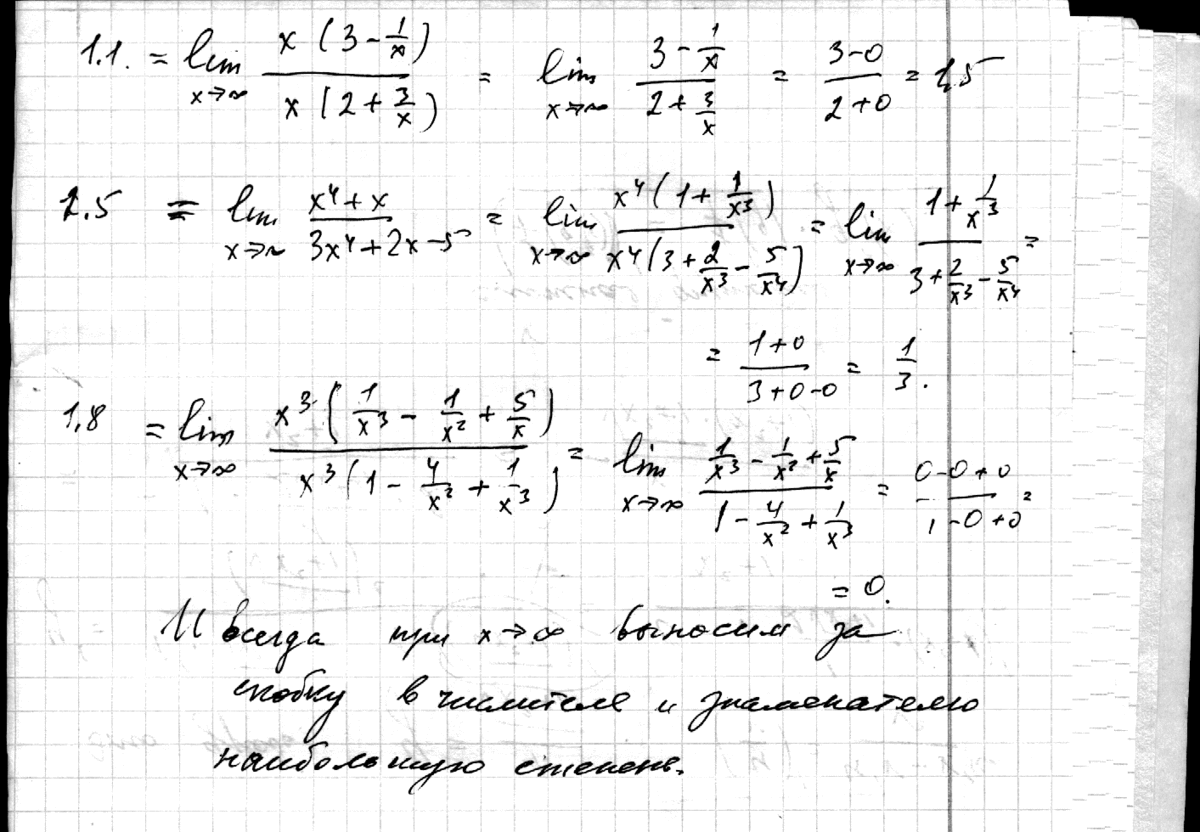 1.1. = lim x→∞ x(3 - 1/x) / x(2 + 3/x) = lim x→∞ (3 - 1/x) / (2 + 3/x) = (3-0) / (2+0) = 1,5
1.5 = lim x→∞ (x⁴+x) / (3x⁴+2x-5) = lim x→∞ x⁴(1 + 1/x³) / x⁴(3 + 2/x³ - 5/x⁴) = lim x→∞ (1 + 1/x³) / (3 + 2/x³ - 5/x⁴) =
= (1+0) / (3+0-0) = 1/3.
1.8 = lim x→∞ x³(1/x³ - 1/x² + 5/x) / x³(1 - 4/x² + 1/x³) = lim x→∞ (1/x³ - 1/x² + 5/x) / (1 - 4/x² + 1/x³) = (0-0+0) / (1-0+0) =
= 0.
И всегда при x→∞ выносим за
скобку в числителе и знаменателю
наибольшую степень.